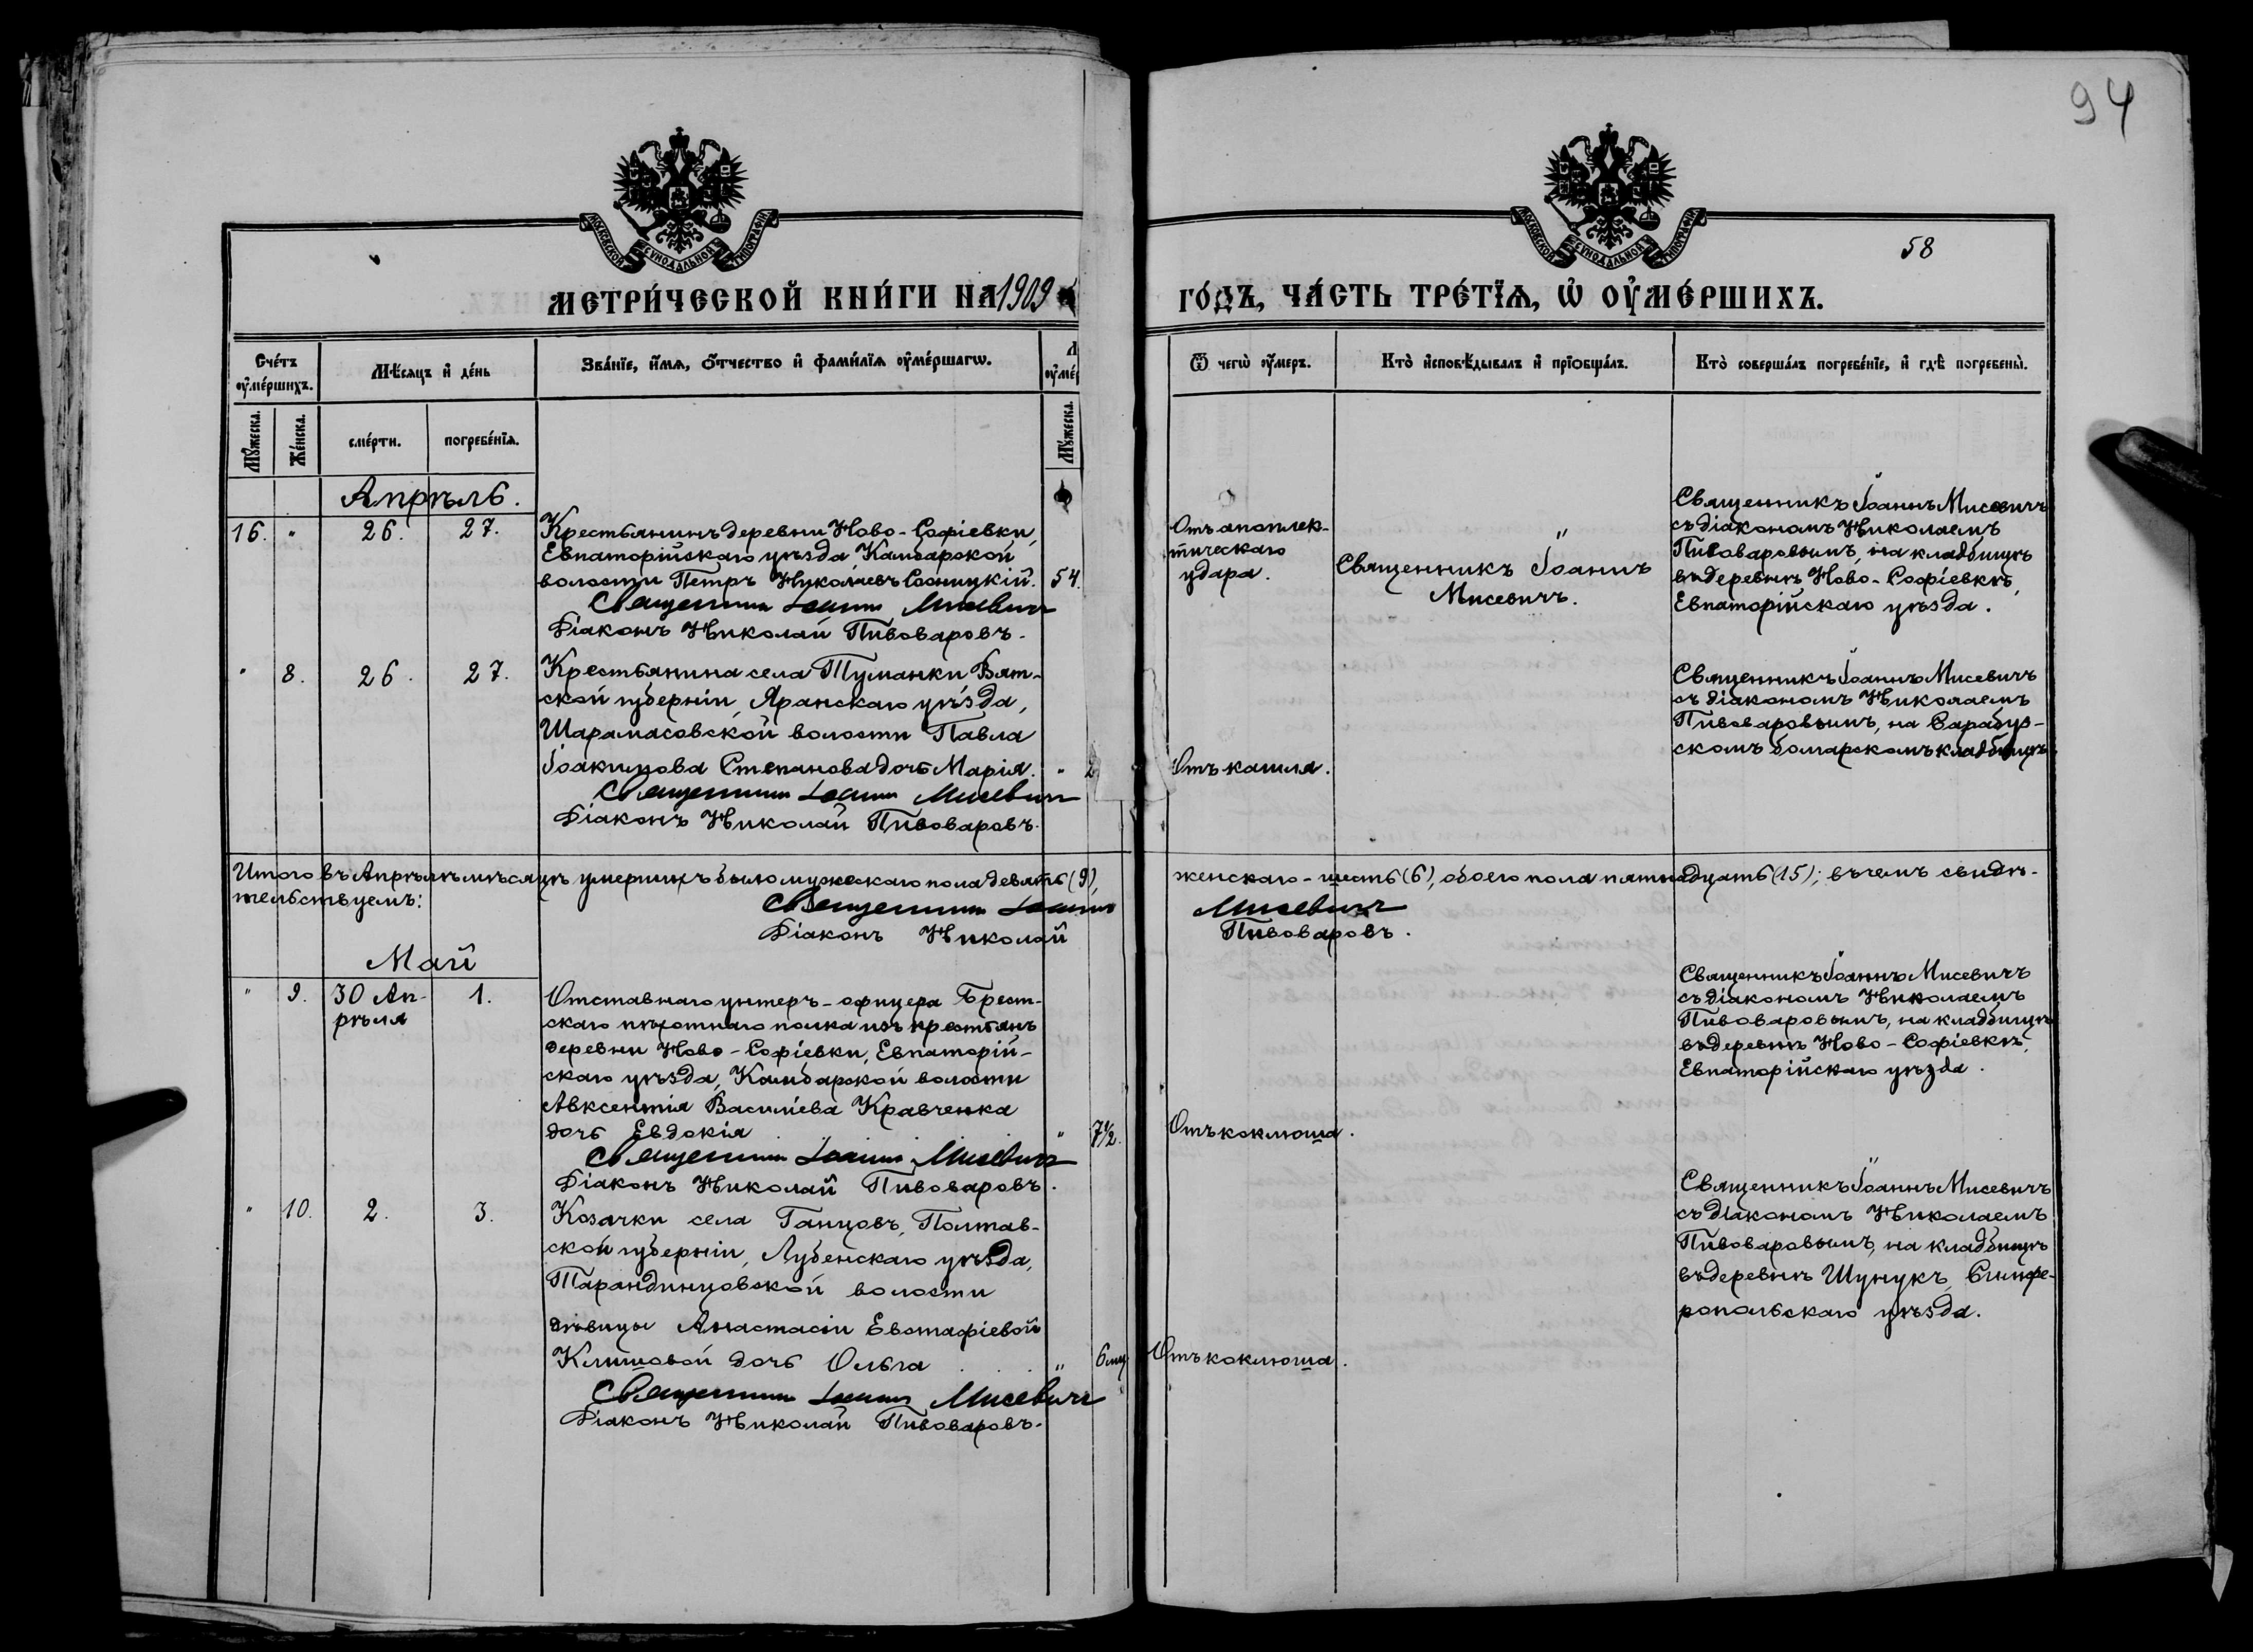 94
МОСКОВСКОЙ СѴНОДАЛЬНОЙ ТИПОГРАФІИ
МОСКОВСКОЙ СѴНОДАЛЬНОЙ ТИПОГРАФІИ
58
МЕТРИ́ЧЕСКОЙ КНИ́ГИ НА 1909
ГО́ДЪ, ЧА́СТЬ ТРЕ́ТЇѦ, Ѡ҆ ОУ҆МЕ́РШИХЪ.
Сче́тъ оу҆ме́ршихъ.
Мѣ́сяцъ и҆ де́нь
Зва́нїе, и҆́мѧ, ѻ҆́тчество и҆ фами́лїѧ оу҆ме́ршагѡ.
Ѿ чегѡ̀ оу҆́меръ.
Кто̀ и҆сповѣ́дывалъ и҆ прїѡбща́лъ.
Кто̀ соверша́лъ погребе́нїе, и҆ гдѣ̀ погребены̀.
Мꙋ́жеска.
Же́нска.
сме́рти.
погребе́нїѧ.
Мꙋ́жеска.
Апрѣль.
16. " 26. 27.
Крестьянинъ деревни Ново-Софіевки,
Евпаторійскаго уѣзда, Камбарской
волости Петръ Николаевъ Сосницкій. 54.
Священникъ Іоаннъ Мисевичъ
Діаконъ Николай Пивоваровъ.
Отъ апоплек-
тическаго
удара.
"
Священникъ Іоаннъ
Мисевичъ.
Священникъ Іоаннъ Мисевичъ
съ діакономъ Николаемъ
Пивоваровымъ, на кладбищѣ
въ деревнѣ Ново-Софіевкѣ,
Евпаторійскаго уѣзда.
" 8. 26. 27.
Крестьянина села Туманки Вят-
ской губерніи, Яранскаго уѣзда,
Шарамасовской волости Павла
Іоакимова Степанова дочь Марія. " 2
Священникъ Іоаннъ Мисевичъ
Діаконъ Николай Пивоваровъ.
Отъ кашля.
Священникъ Іоаннъ Мисевичъ
съ діакономъ Николаемъ
Пивоваровымъ, на Сарабуз-
скомъ болгарскомъ кладбищѣ
Итого въ Апрѣлѣ мѣсяцѣ умершихъ было мужескаго пола девять (9),
женскаго - шесть (6), обоего пола пятнадцать (15); въ чемъ свидѣ-
тельствуемъ:
Священникъ Іоаннъ Мисевичъ
Діаконъ Николай Пивоваровъ.
Май
" 9. 30 Ап-
рѣля 1.
Отставнаго унтеръ-офицера Брест-
скаго пѣхотнаго полка изъ крестьянъ
деревни Ново-Софіевки, Евпаторій-
скаго уѣзда, Камбарской волости
Авксентія Василіева Кравченка
дочь Евдокія " 7½.
Священникъ Іоаннъ Мисевичъ
Діаконъ Николай Пивоваровъ.
Отъ коклюша.
Священникъ Іоаннъ Мисевичъ
съ діакономъ Николаемъ
Пивоваровымъ, на кладбищѣ
въ деревнѣ Ново-Софіевкѣ,
Евпаторійскаго уѣзда.
" 10. 2. 3.
Козачки села Ганцовъ, Полтав-
ской губерніи, Лубенскаго уѣзда,
Тарандинцовской волости
дѣвицы Анастасіи Евстафіевой
Климовой дочь Ольга " 6 мц
Священникъ Іоаннъ Мисевичъ
Діаконъ Николай Пивоваровъ.
Отъ коклюша.
Священникъ Іоаннъ Мисевичъ
съ діакономъ Николаемъ
Пивоваровымъ, на кладбищѣ
въ деревнѣ Шунукъ, Симфе-
ропольскаго уѣзда.